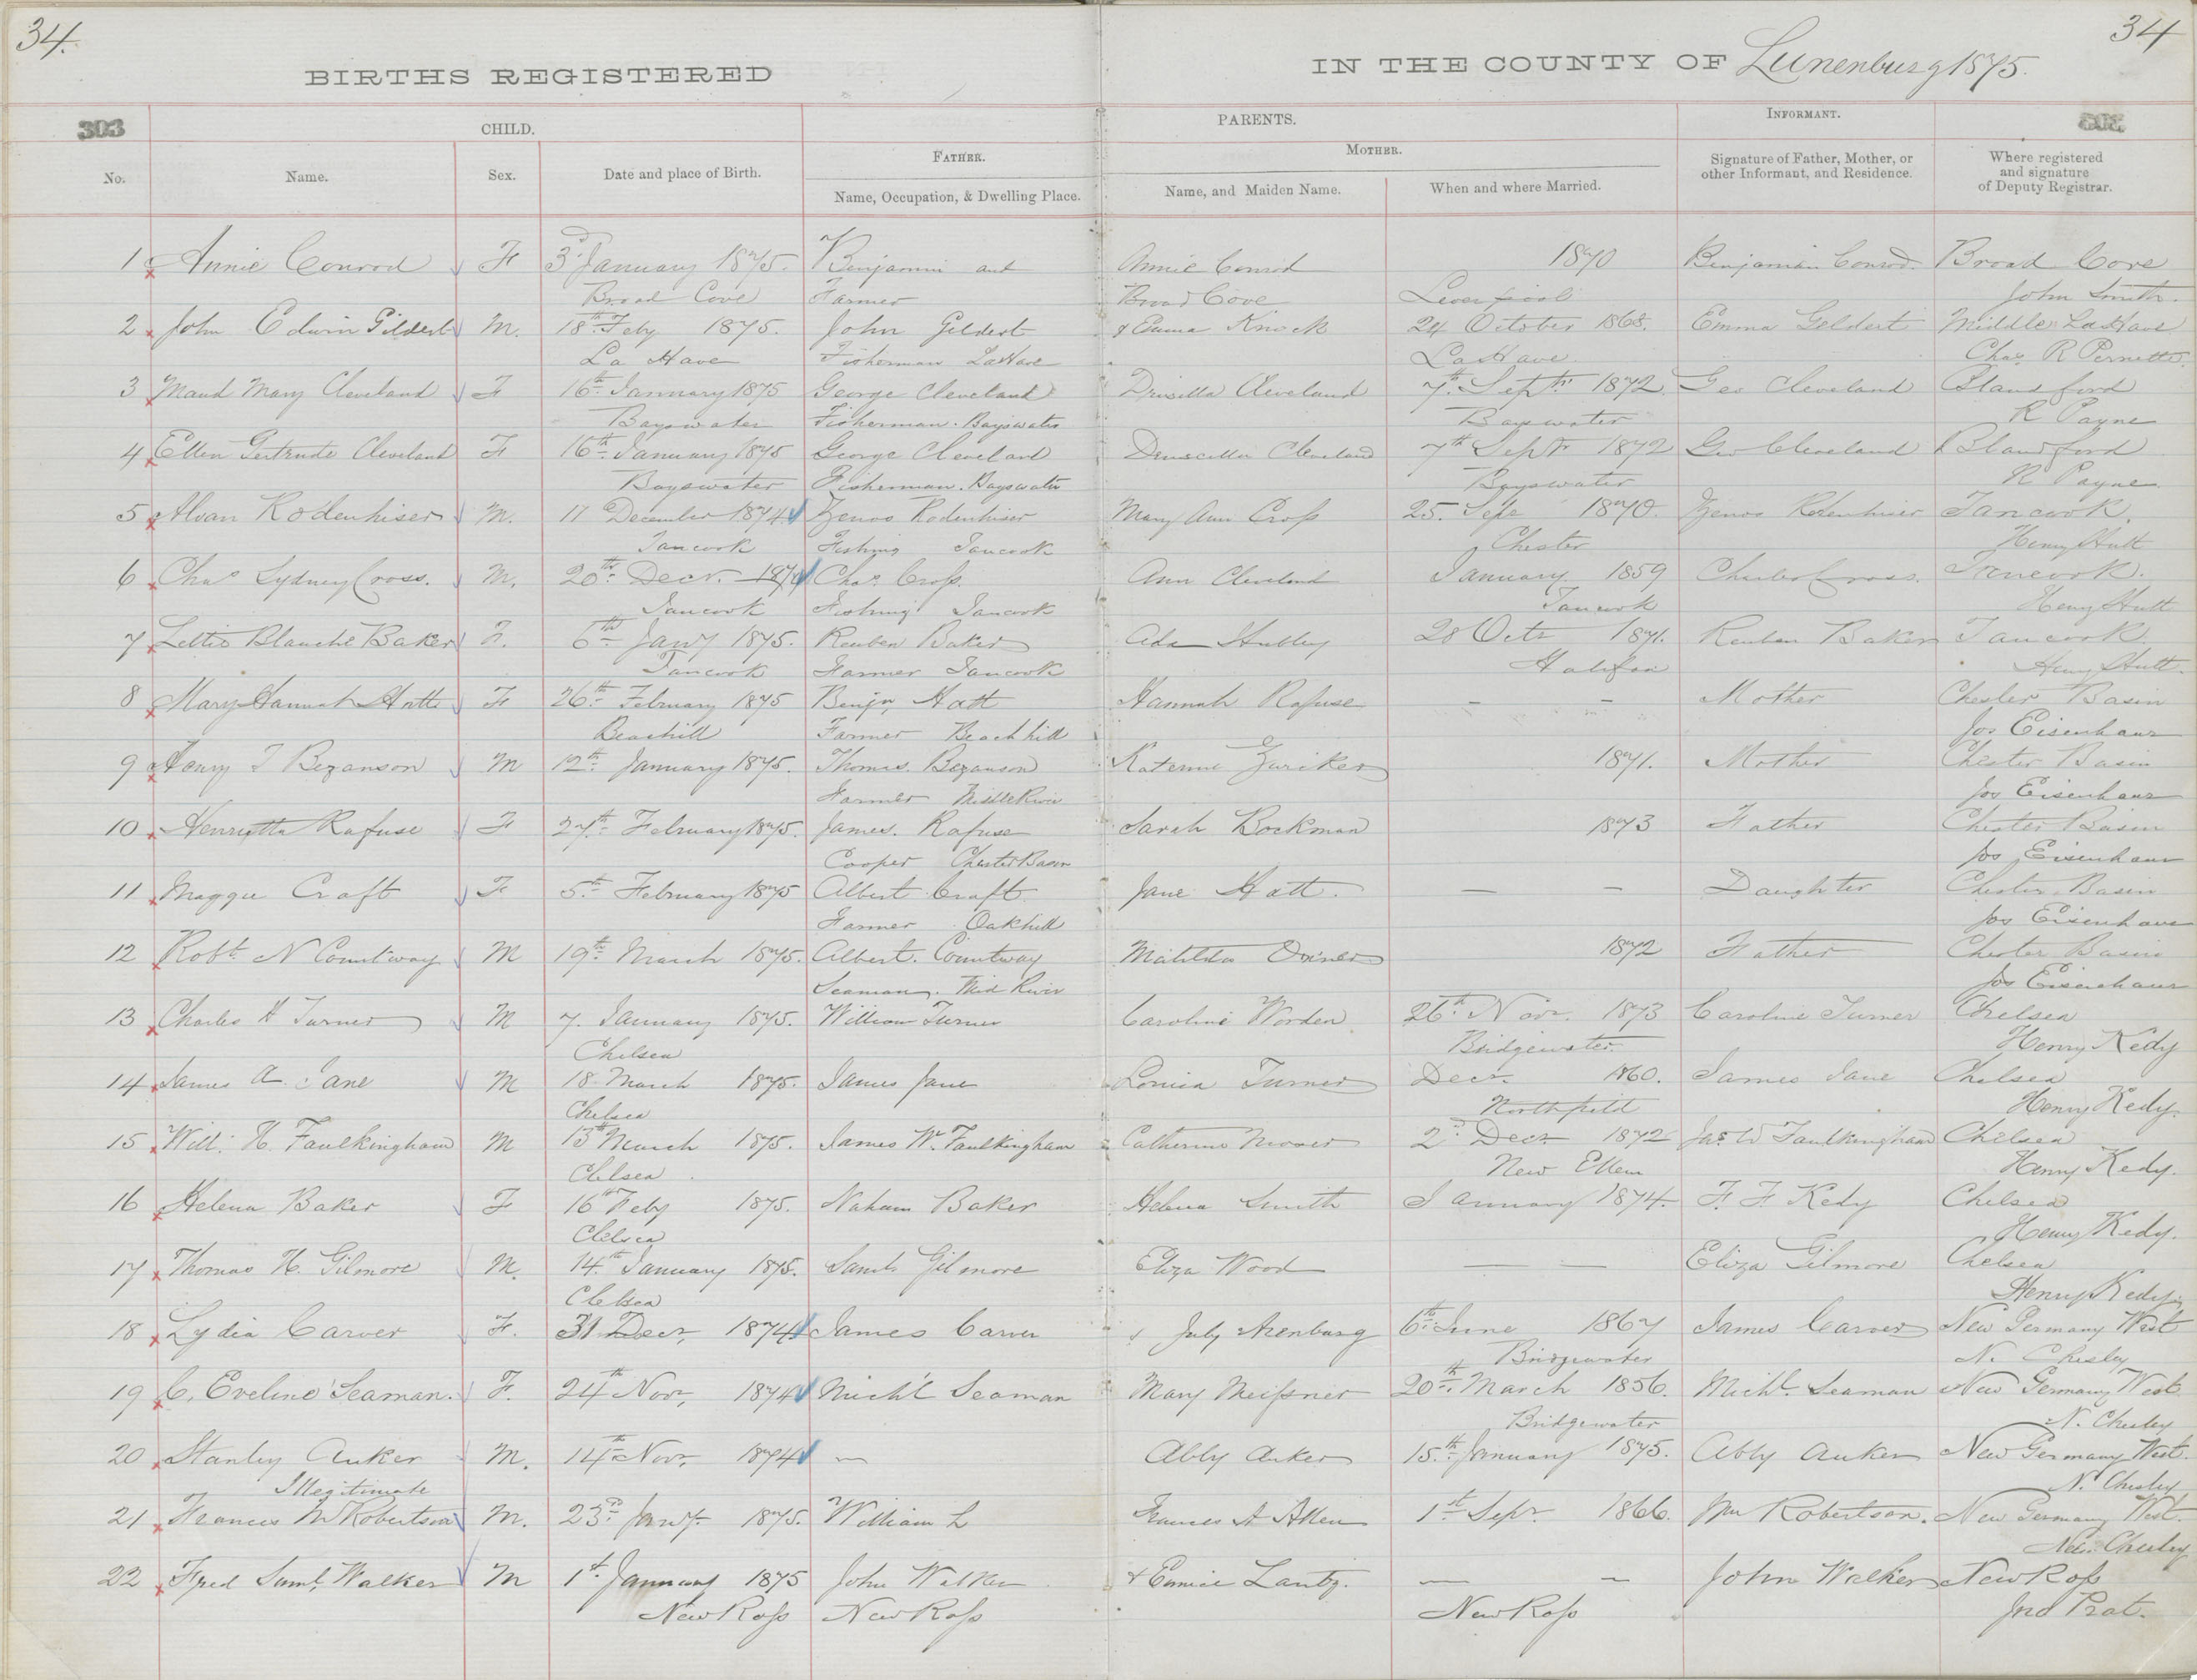 34.
34
BIRTHS REGISTERED
IN THE COUNTY OF Lunenburg 1875.
303
CHILD.
PARENTS.
INFORMANT.
303
FATHER.
MOTHER.
No.
Name.
Sex.
Date and place of Birth.
Name, Occupation, & Dwelling Place.
Name, and Maiden Name.
When and where Married.
Signature of Father, Mother, or
other Informant, and Residence.
Where registered
and signature
of Deputy Registrar.
1 Annie Conrod F 3d January 1875. Benjamin and Annie Conrod 1870 Benjamin Conrod. Broad Cove
Broad Cove Farmer Broad Cove Liverpool John Smith.
2 John Edwin Gildert M. 18th Feby 1875. John Geldert & Emma Knock 24 October 1868. Emma Geldert Middle LaHave
La Have Fisherman LaHave LaHave Chas R Pernette
3 Maud Mary Cleveland F 16th January 1875 George Cleveland Drusilla Cleveland 7th Septr 1872 Geo Cleveland Blandford
Bayswater Fisherman. Bayswater Bayswater R Payne
4 Ellen Gertrude Cleveland F 16th January 1875 George Cleveland Druscilla Cleveland 7th Septr 1872 Geo Cleveland Blandford
Bayswater Fisherman. Bayswater Bayswater R Payne
5 Alvan Rodenhiser M. 17 December 1874 Zenos Rodenhiser Mary Ann Cross 25. Sept 1870. Zenos Rodenhiser Tancook.
Tancook Fishing Tancook Chester Henry Hutt
6 Chas Sydney Cross. M. 20th Decr. 1874 Chas. Cross. Ann Cleveland January 1859 Charles Cross. Tancook.
Tancook Fishing Tancook Tancook Henry Hutt
7 Lettie Blanche Baker F. 6th Jany 1875. Reuben Baker Ada Hubley 28 Octr 1871. Reuben Baker Tancook.
Tancook Farmer Tancook Halifax Henry Hutt.
8 Mary Hannah Hatt F 26th February 1875 Benjn Hatt Hannah Rafuse - - Mother Chester Basin
Beachill Farmer Beachhill Jos Eisenhaur
9 Henry T Bezanson M 12th January 1875. Thomas. Bezanson Katerine Zwicker 1871. Mother Chester Basin
Farmer Middle River Jos Eisenhaur
10 Henrietta Rafuse F 27th February 1875. James. Rafuse Sarah Bockman 1873 Father Chester Basin
Cooper Chester Basin Jos Eisenhaur
11 Maggie Craft F 5th February 1875 Albert Craft Jane Hatt. — — Daughter Chester Basin
Farmer Oakhill Jos Eisenhaur
12 Robt N Countway M 19th March 1875. Albert. Countway Matilda 1872 Father Chester Basin
Seaman. Mid River Jos Eisenhaur
13 Charles H Turner M 7. January 1875. William Turner Caroline Worden 26th Novr. 1873 Caroline Turner Chelsea
Chelsea Bridgewater. Henry Kedy
14 James A. Jane M 18 March 1875. James Jane Louisa Turner Decr. 1860. James Jane Chelsea
Chelsea Northfield Henry Kedy.
15 Will: H. Faulkingham M 13th March 1875. James W. Faulkingham Catherine 2d Decr 1872 Jas W Faulkingham Chelsea
Chelsea. New Henry Kedy.
16 Helena Baker F 16th Feby 1875. Nahum Baker Helena Smith January 1874. F. F Kedy Chelsea
Chelsea Henry Kedy.
17 Thomas H. Gilmore M. 14th January 1875. Saml Gilmore Eliza Wood — — Eliza Gilmore Chelsea
Chelsea Henry Kedy.
18 Lydia Carver F. 31 Decr, 1874 James Carver & July Arenburg 6th June 1867 James Carver New Germany West
Bridgewater N. Chesley
19 C. Eveline Seaman. F. 24th Novr, 1874 Mich'l Seaman Mary Meissner 20th March 1856. Michl. Seaman New Germany West
Bridgewater N. Chesley
20 Stanley Auker M. 14th Novr, 1874 — Abby Auker 15th January 1875. Abby Auker New Germany West.
Illegitimate N. Chesley
21 Frances M Robertson M. 23d Jany. 1875. William L Frances A Allen 1st Sepr. 1866. Wm Robertson. New Germany West.
Chesley
22 Fred Saml. Walker M 1st January 1875 John Walker & Eunice Lantz. — — John Walker New Ross
New Ross New Ross New Ross Jno Prat.